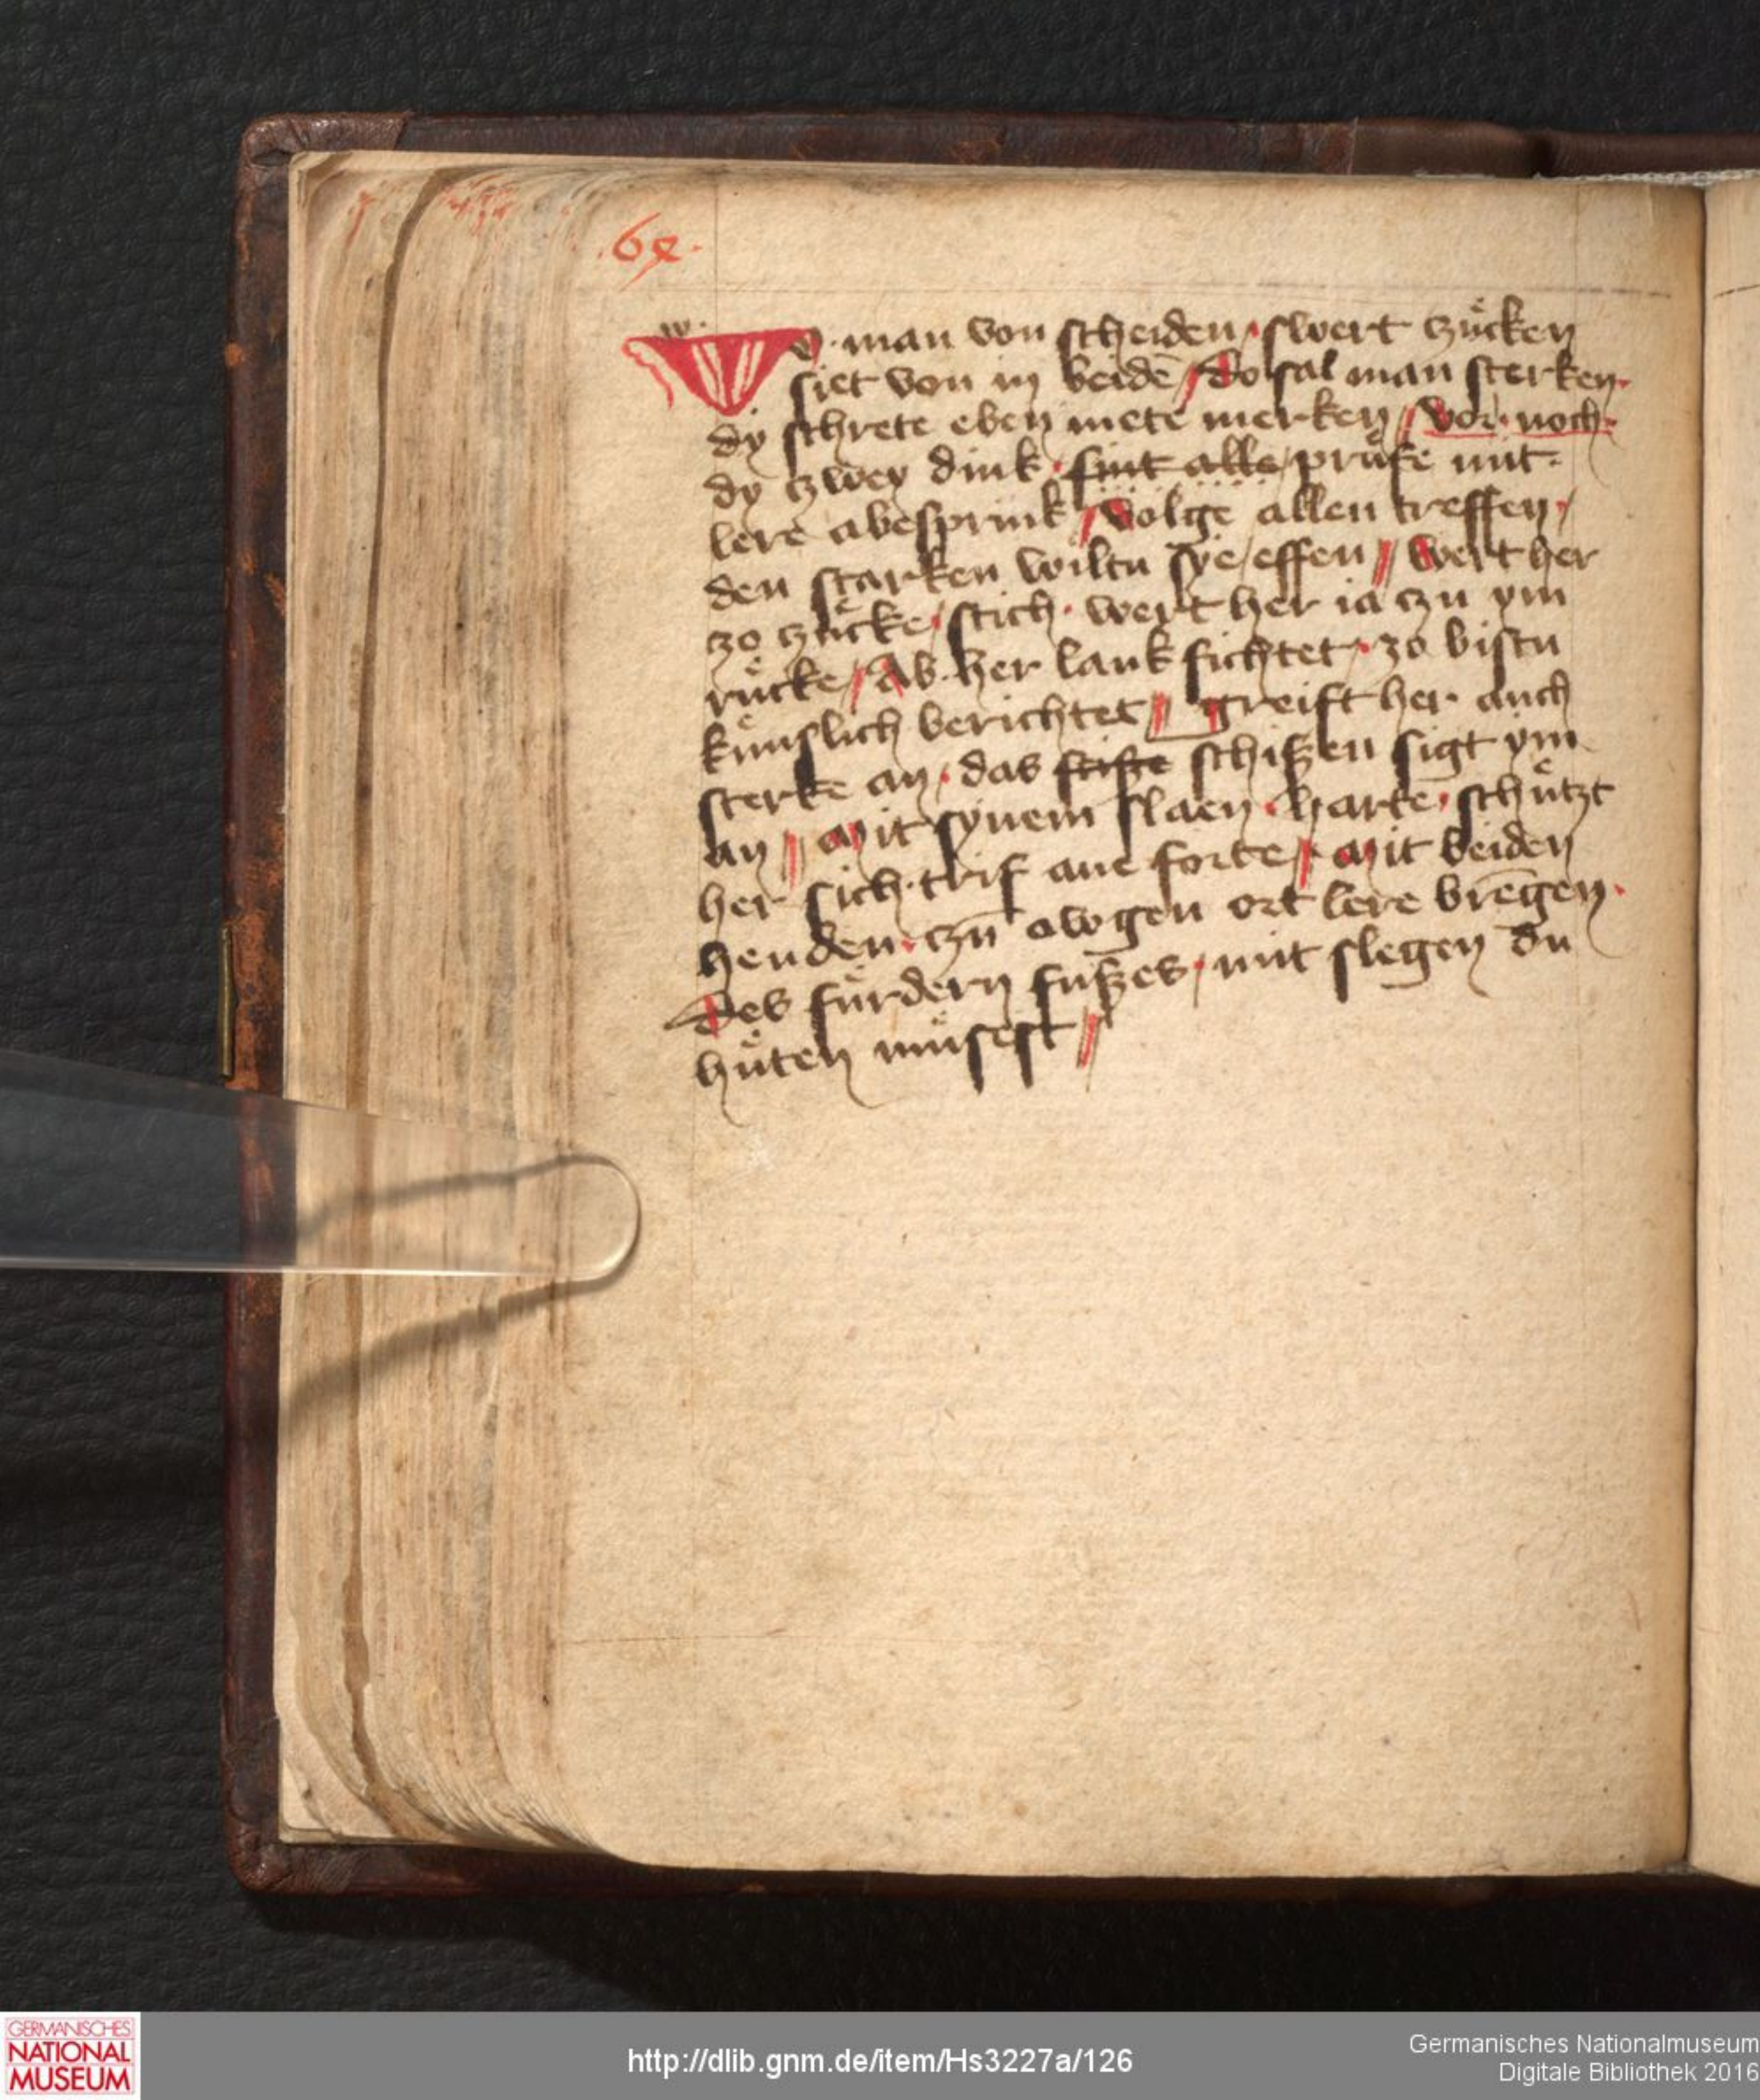 .64.
w.
Wo man von scheiden · swert zuͤcken
siet von in beidē / do sal man sterken.
dy schrete eben mete merken / vor · noch.
dy zwey dink · sint alle / pruͤfe mit·
lere abesprink / volge allen treffen /
den starken wiltu sye / effen // wert her
zo zuͤcke / stich · wert her ia zu ym
ruͤcke / Ab her lank fichtet · zo bistu
kuͤnslich berichtet // greift her auch
sterke an · das schißen sigt ym
an // Mit synem slaen · harte · schuͤtzt
her sich · trif ane forte // Mit beiden
henden · czū awgen ort lere brēgen ·
Des fuͤrdern fußes · mit slegen du
huͤten muͤsest //
GERMANISCHES
NATIONAL
MUSEUM
http://dlib.gnm.de/item/Hs3227a/126
Germanisches Nationalmuseum
Digitale Bibliothek 2016